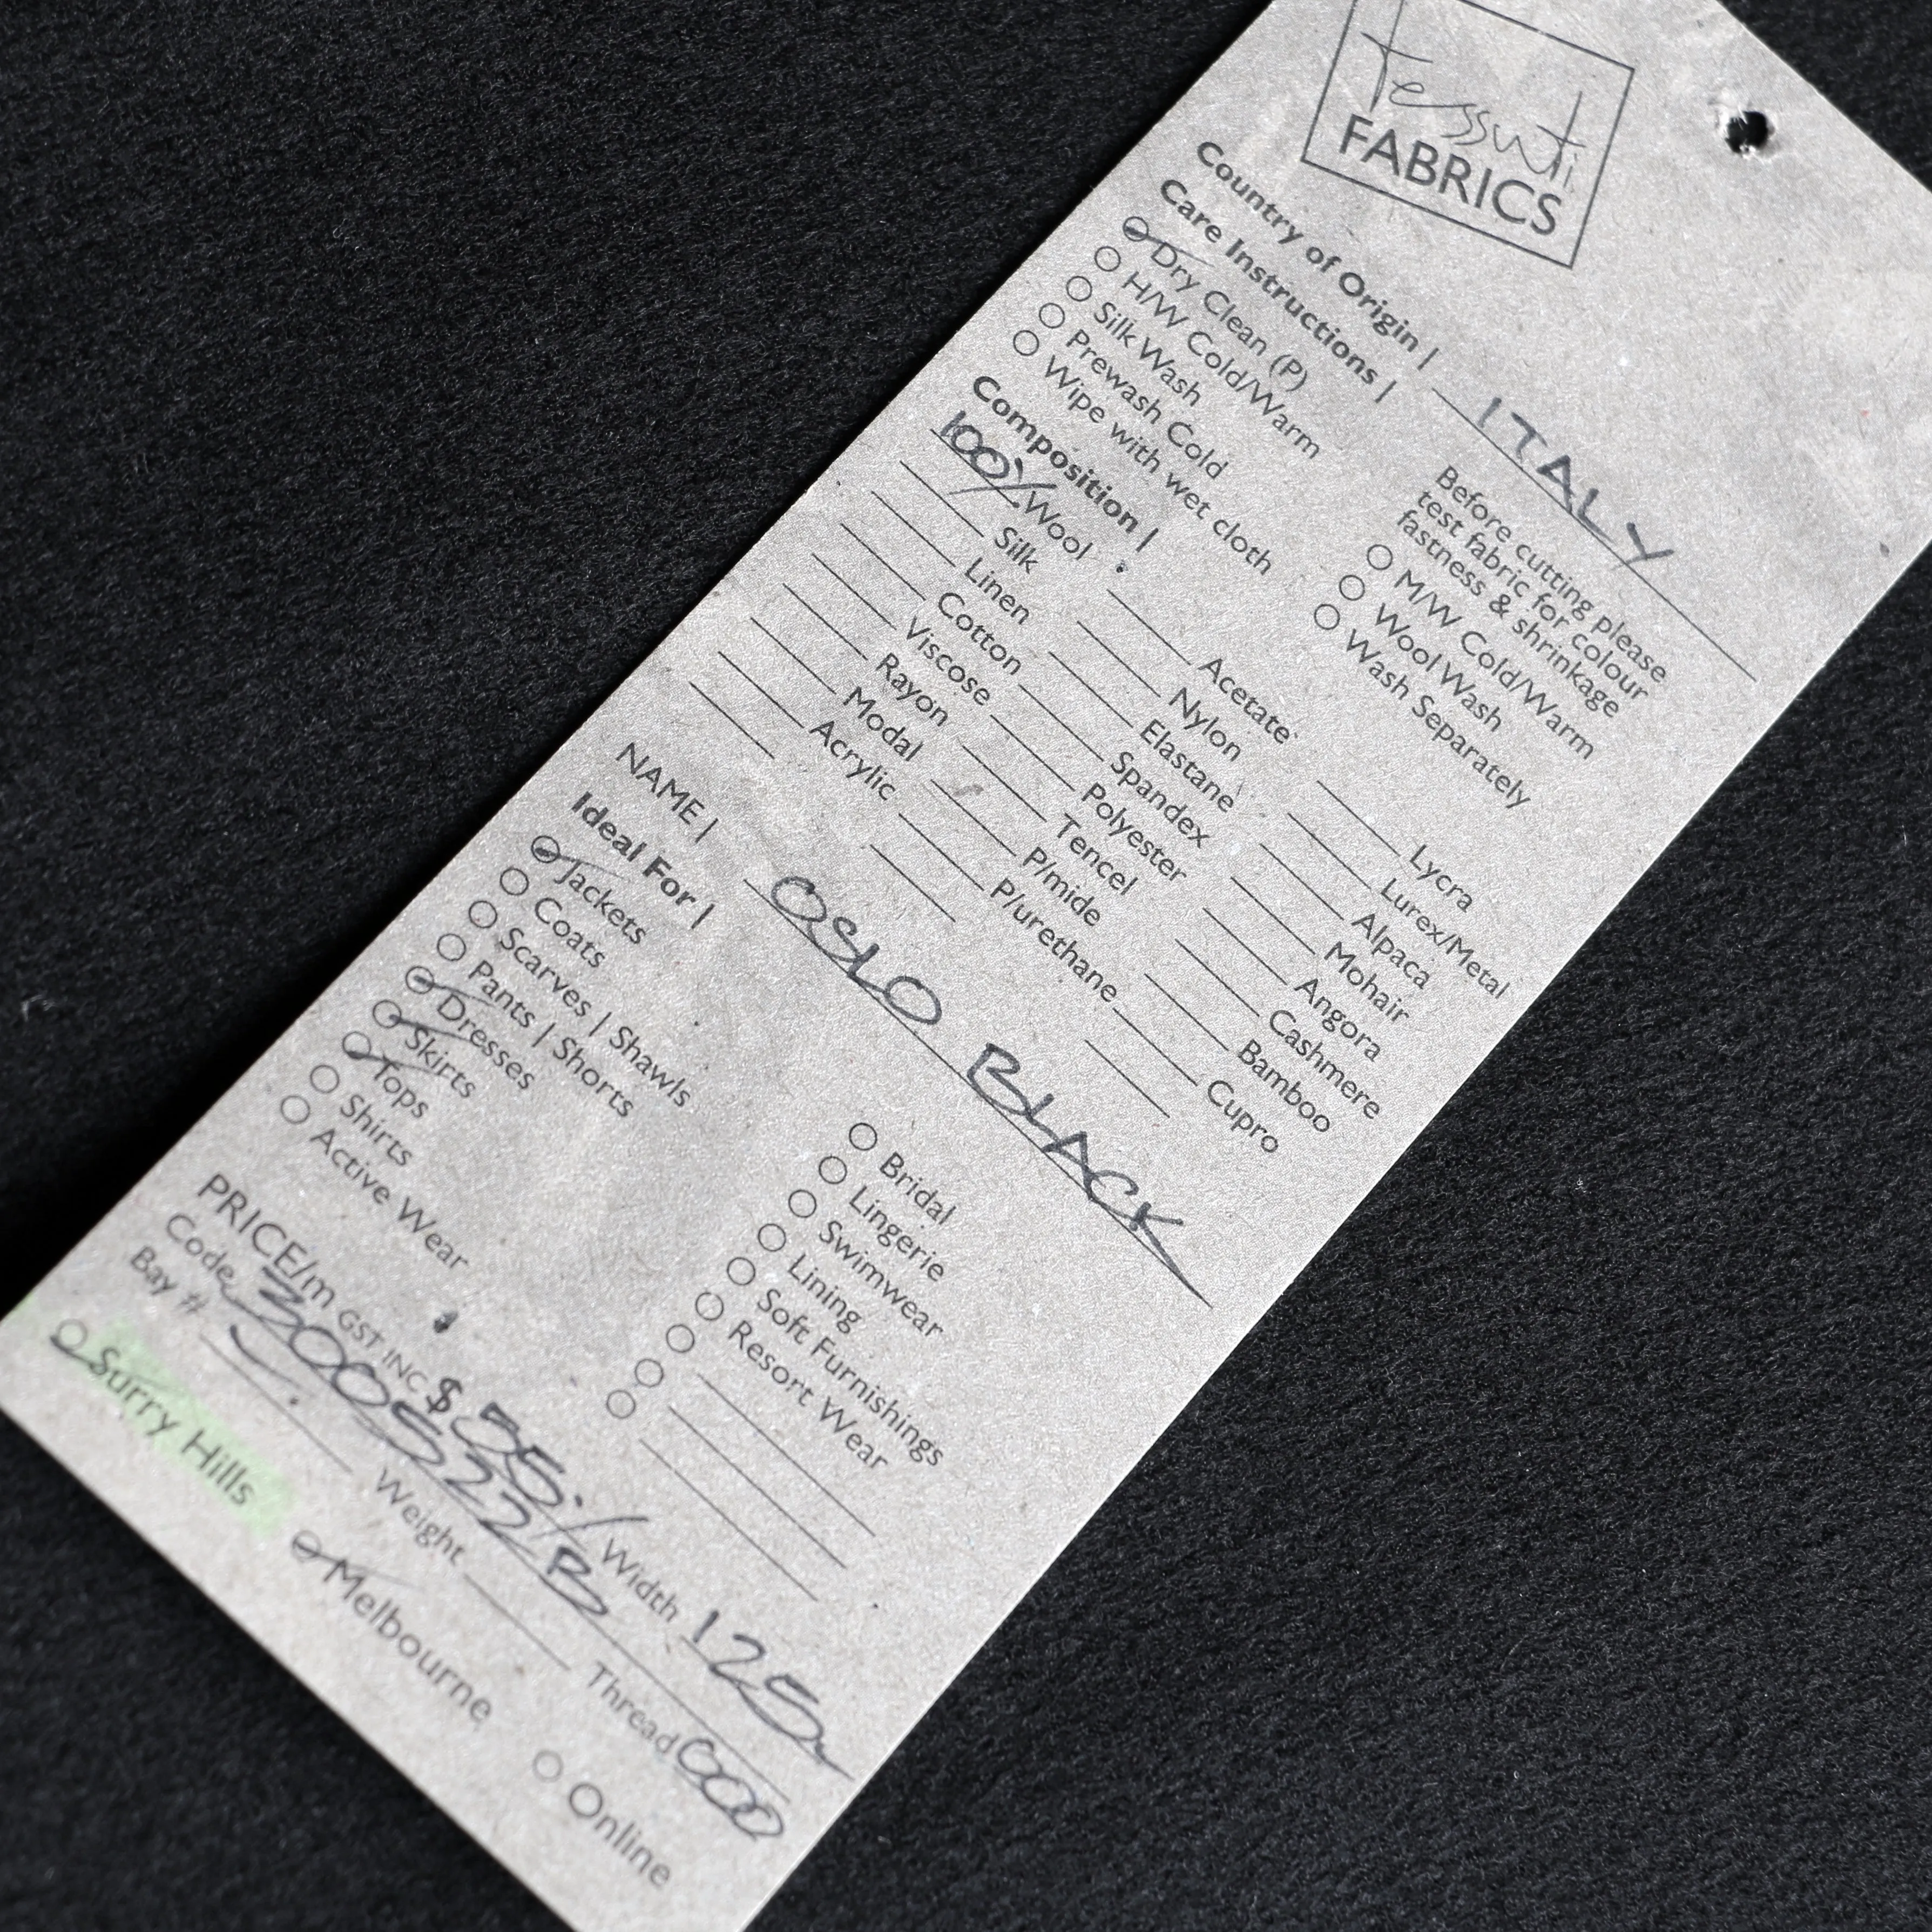 tessuti
FABRICS
Country of Origin | ITALY
Care Instructions |
Before cutting please
test fabric for colour
fastness & shrinkage
Dry Clean (P)
H/W Cold/Warm
Silk Wash
Prewash Cold
Wipe with wet cloth
M/W Cold/Warm
Wool Wash
Wash Separately
Composition |
100% Wool
Silk
Linen
Cotton
Viscose
Rayon
Modal
Acrylic
Acetate
Nylon
Elastane
Spandex
Polyester
Tencel
P/mide
P/urethane
Lycra
Lurex/Metal
Alpaca
Mohair
Angora
Cashmere
Bamboo
Cupro
NAME | OSLO BLACK
Ideal For |
Jackets
Coats
Scarves | Shawls
Pants | Shorts
Dresses
Skirts
Tops
Shirts
Active Wear
Bridal
Lingerie
Swimwear
Lining
Soft Furnishings
Resort Wear
PRICE/m GST INC $ 35.- Width 125
Code 300522B
Bay # Weight Thread 000
Surry Hills Melbourne Online